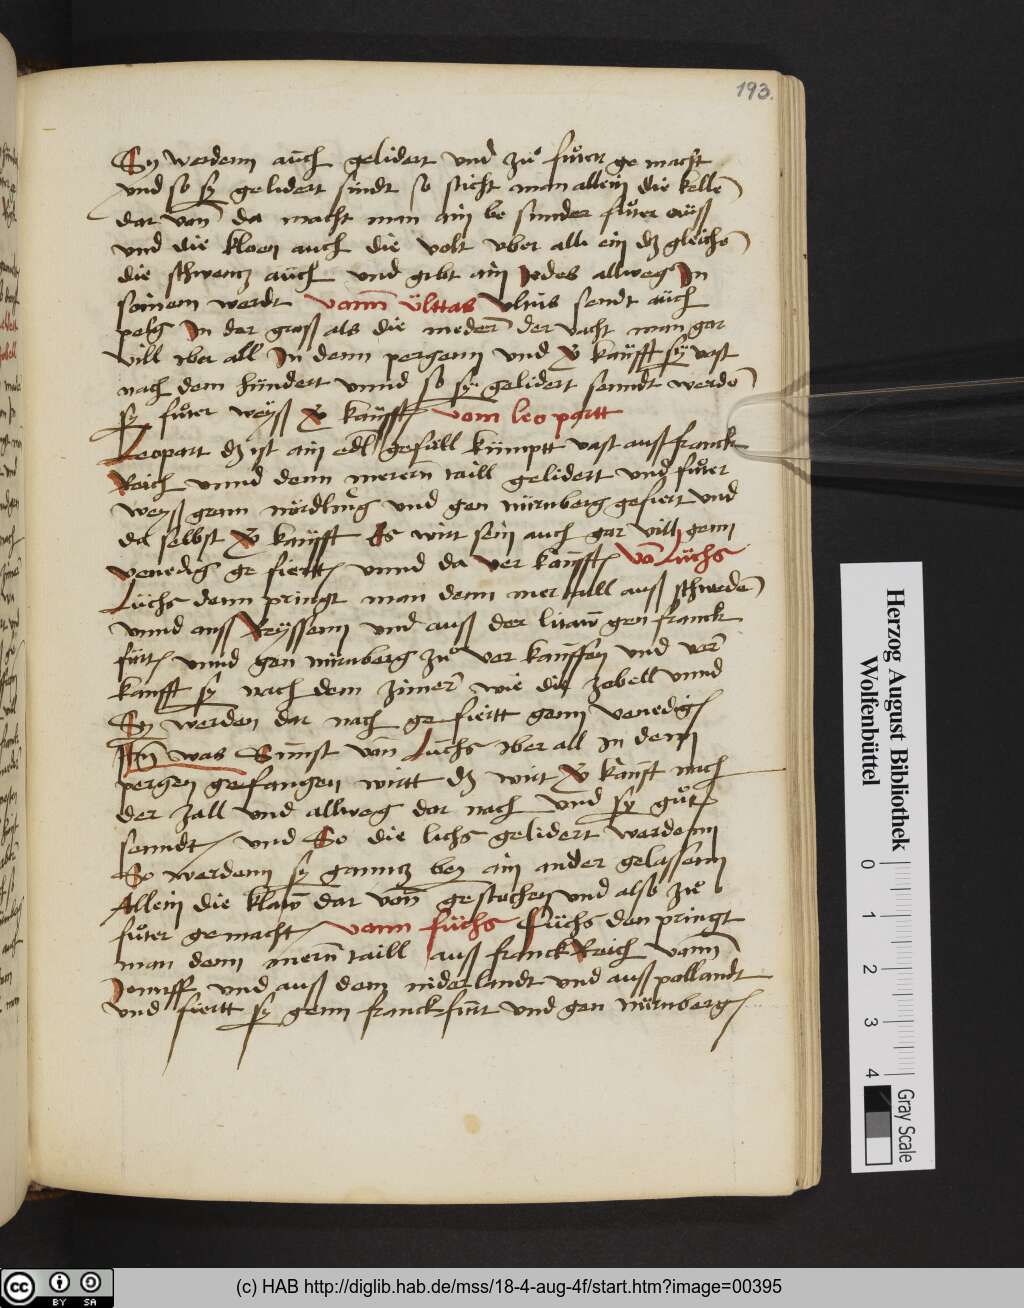 193.
Sy werdenn auch gelidert und zu futer ge macht
und so sy gelidert sindt so sticht man allein die kelle
dar von da macht man ain be sunder futer auß
und die kloen auch die volt uber all ein dz gleichē
die schwentz auch und gibt ain Jedes allweg In
seinem werdt vonn ülttas ultus sendt auch
pelg In der groß als die meder der vacht man gar
vill uber all In denn pergenn und kaufft sy vast
nach dem hundert unnd so sy gelidert senndt werdē
sy futer weyß kaufft vom leopartt
Leopart dz ist ain edl gefull kumptt vast auß franck
Reich unnd denn merern taill gelidert und futer
weyß genn nördling und gen nürnberg gefiert und
da selbst kaufft Es wirt sein auch gar vill genn
venedig ge fiertt unnd da ver kaufft vō Lüchs
Lüchs denn pringt man denn mer taill auß schwedē
unnd auss Reyssenn und auß der litaw gen franck
furt unnd gen nurnberg zu ver kauffen und ver
kaufft sy nach dem zimer wie die zobell unnd
Sy werden dar nach ge fiertt genn venedig
was Sunst von Luchs uber all In denn
pergen gefangen wirtt dz wirt kauft nach
der zall und allweg dar nach und sy gut
senndt und So die lichs gelidert werdenn
So werdenn sy ganntz bey ain ander gelassenn
Allein die klaw dar von gestochen und also zu
futer gemacht vonn füchs füchs den pringt
man denn merern taill auß franck Reich vonn
und auß dem niderlandt und auß pollandt
und fiertt sy genn franckfurt und gen nürnberg
Herzog August Bibliothek
Wolfenbüttel
0 1 2 3 4
Gray Scale
cc BY SA
(c) HAB http://diglib.hab.de/mss/18-4-aug-4f/start.htm?image=00395